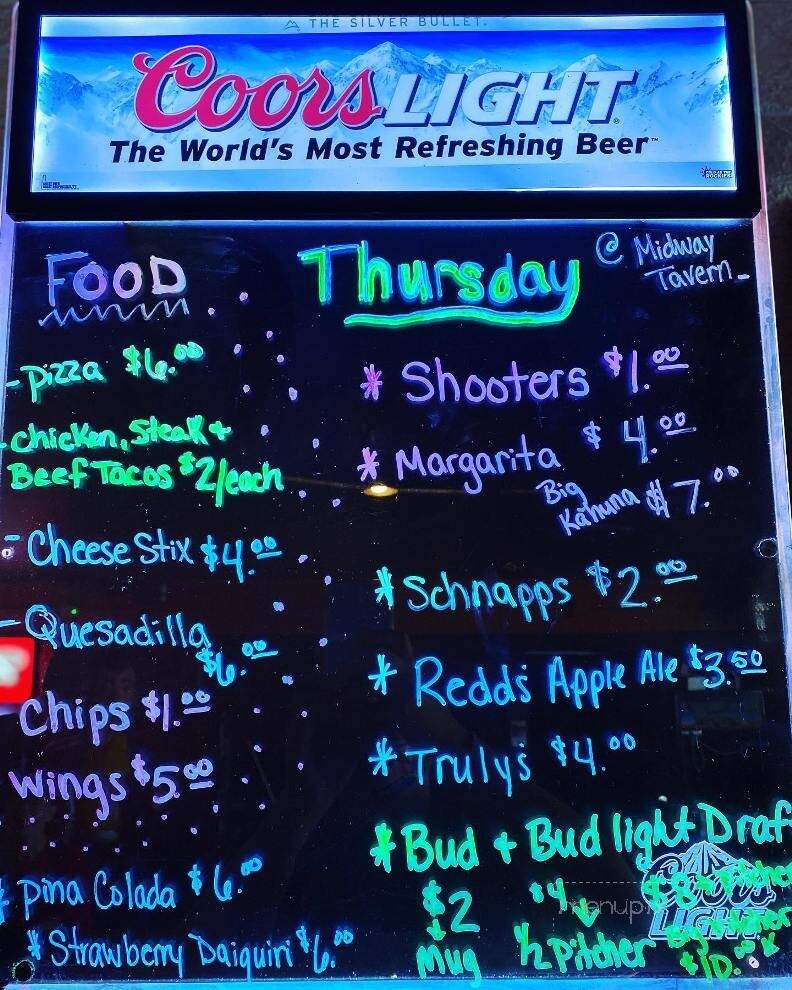 THE SILVER BULLET.
Coors LIGHT
The World's Most Refreshing Beer™
FOOD
- Pizza $6.00
- Chicken, Steak +
Beef Tacos $2/each
- Cheese Stix $4.00
- Quesadilla
$6.00
Chips $1.00
Wings $5.00
* Pina Colada $6.00
* Strawberry Daiquiri $6.00
Thursday
@ Midway
Tavern
* Shooters $1.00
* Margarita $4.00
Big
Kahuna $7.00
* Schnapps $2.00
* Redds Apple Ale $3.50
* Trulys $4.00
* Bud + Bud light Draf
$2 $4 $8
Mug 1/2 Pitcher
$10.00
Coors
LIGHT